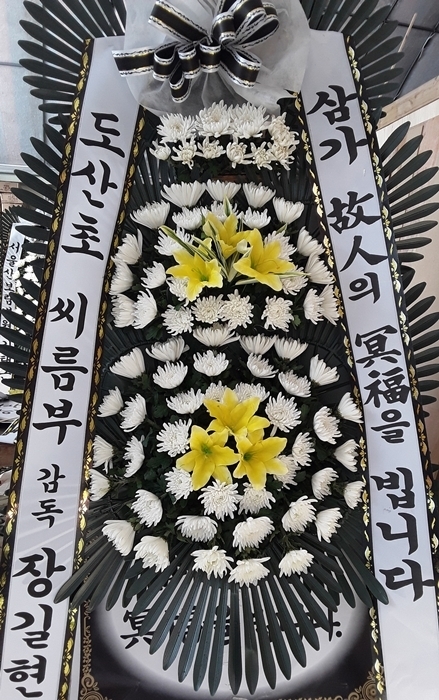 삼가 故人의 冥福을 빕니다
도산초 씨름부 감독 장길현